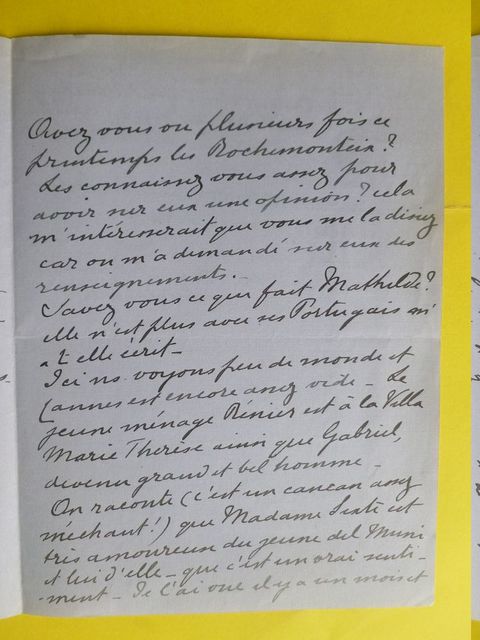 Avez vous vu plusieurs fois ce
printemps les Rochemonteix?
Les connaissez vous assez pour
avoir sur eux une opinion? cela
m'intéresserait que vous me la disiez
car on m'a demandé sur eux des
renseignements.
Savez vous ce que fait Mathilde?
elle n'est plus avec ses Portugais m'
a t elle écrit_
Ici ns. voyons peu de monde et
Cannes est encore assez vide_ Le
jeune ménage Rénier est à la Villa
Marie Thérèse ainsi que Gabriel,
devenu grand et bel homme_
On raconte (c'est un cancan assez
méchant!) que Madame Sixte est
très amoureuse du jeune del Muni
et lui d'elle_ que c'est un vrai senti-
ment_ Je l'ai vue il y a un mois et